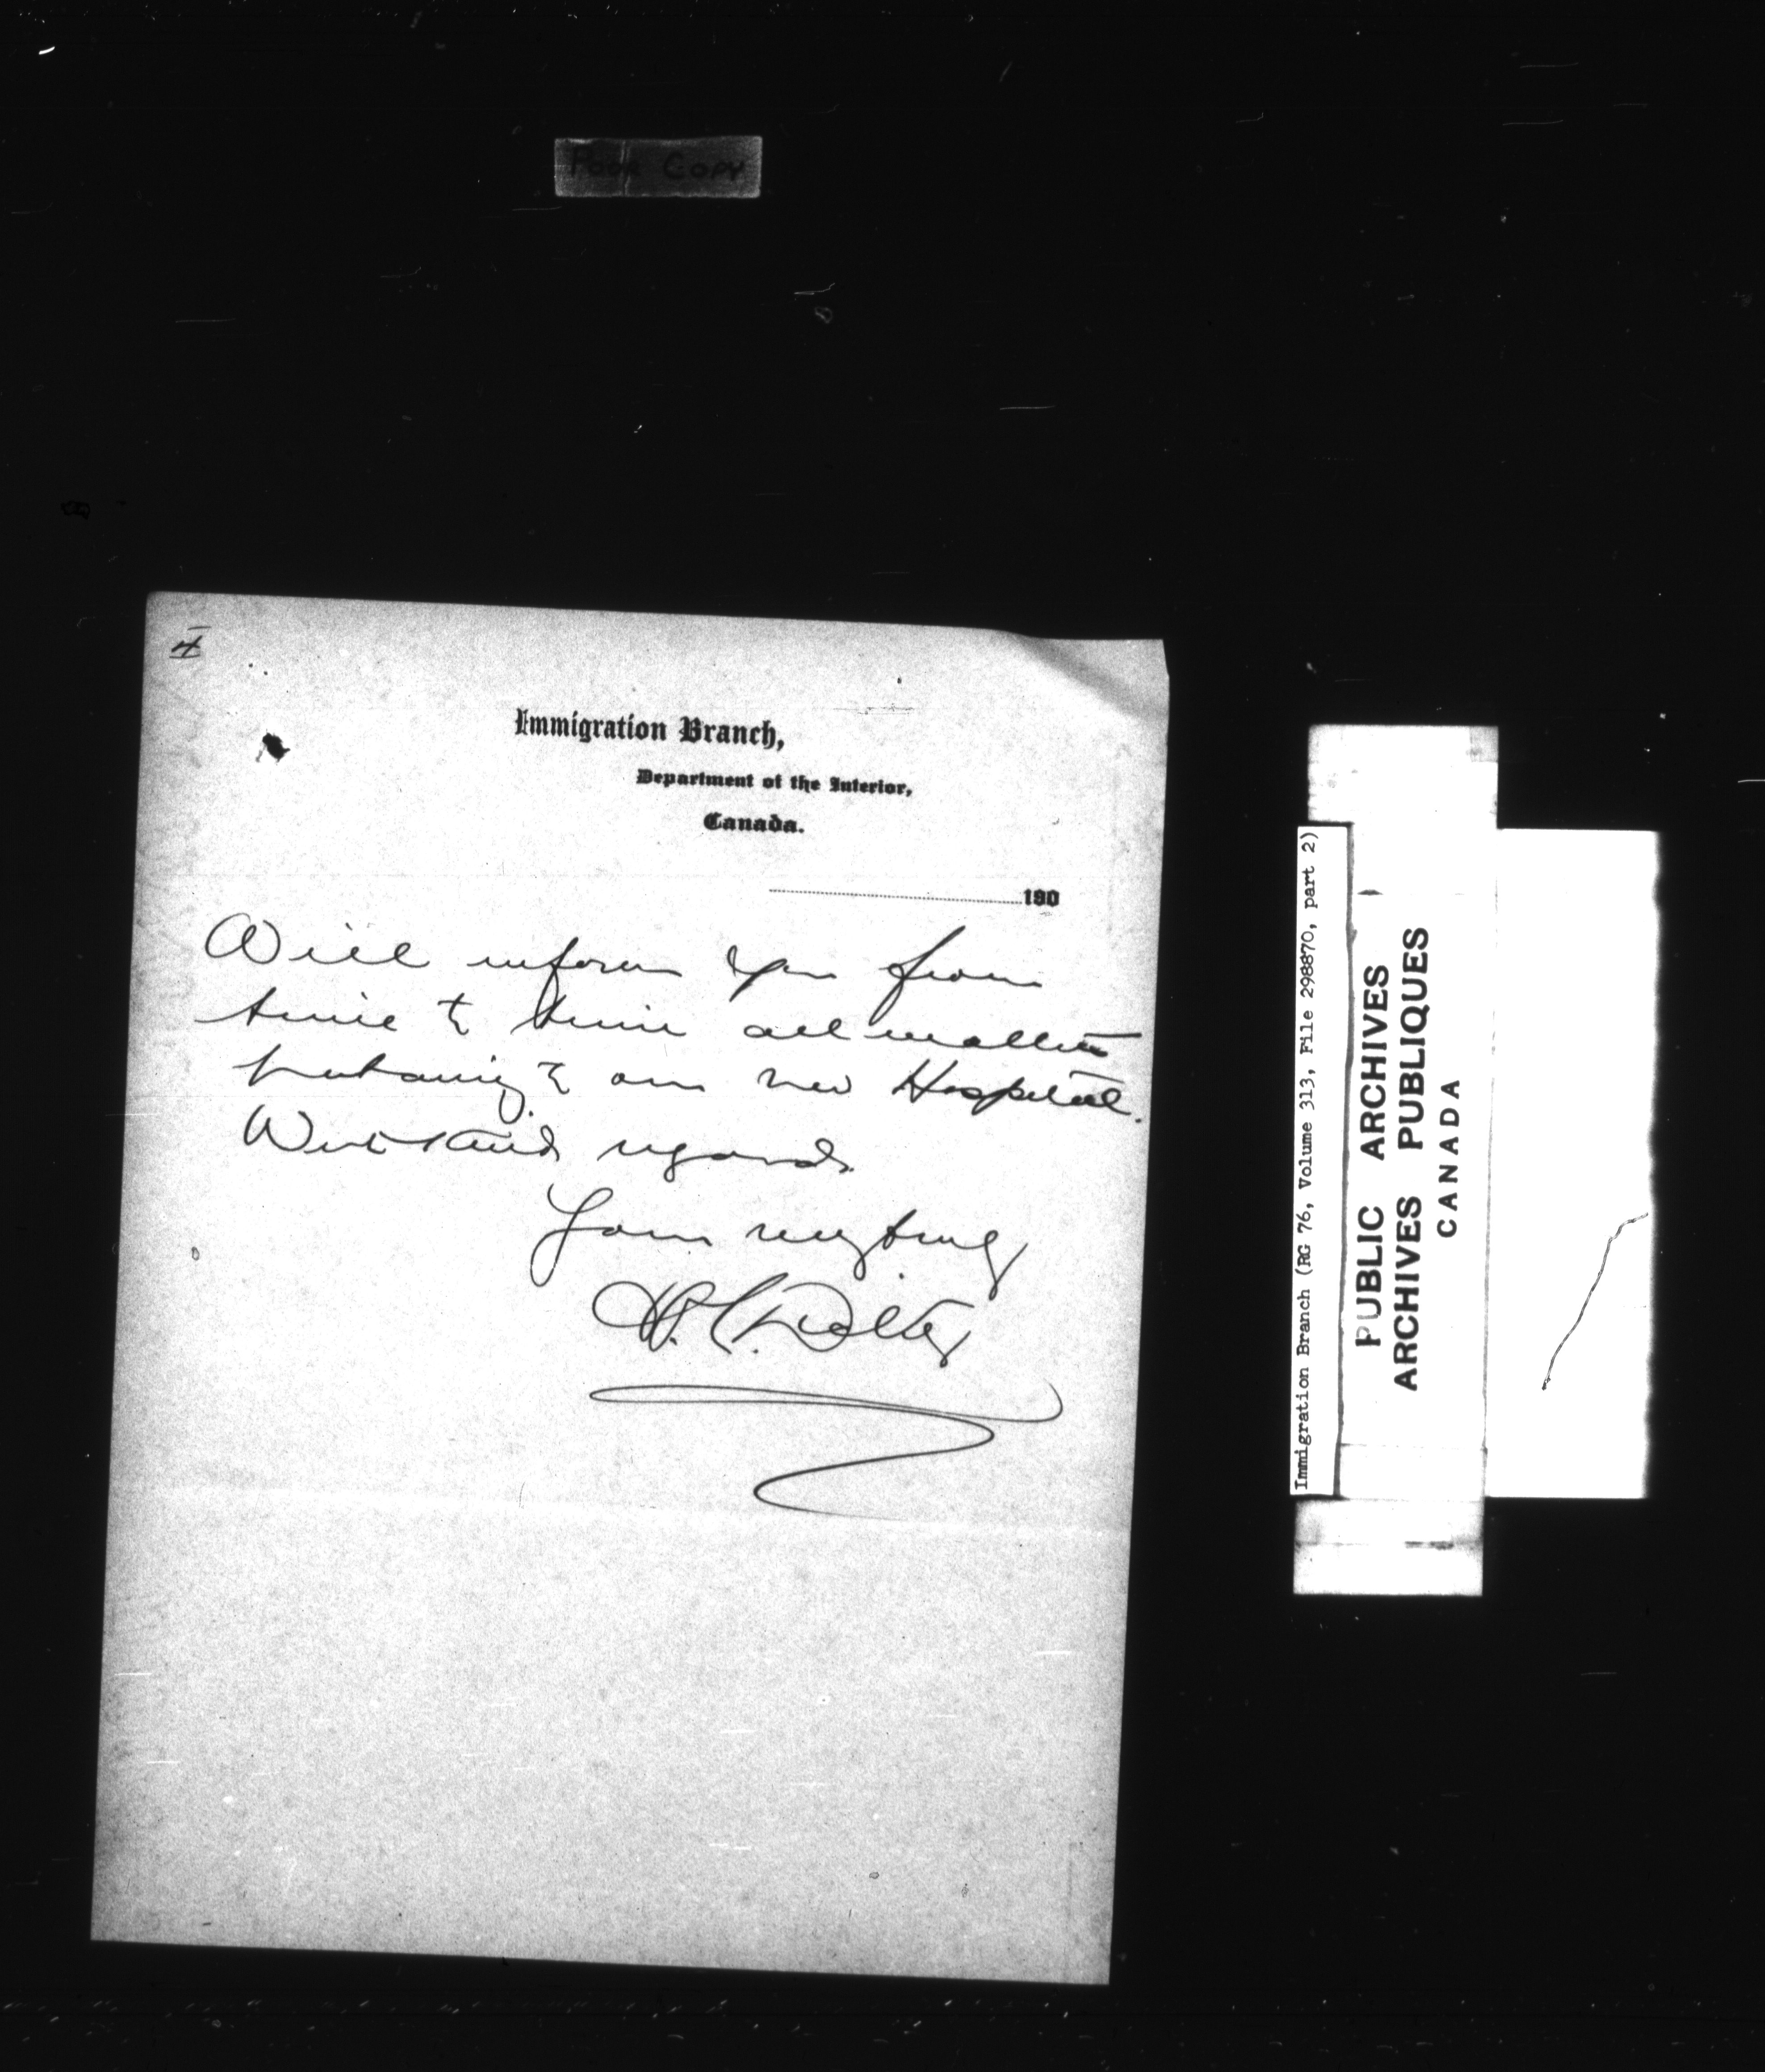 Poor Copy
4
Immigration Branch,
Department of the Interior,
Canada.
190
Will inform you from
time to time all matters
pertaining to our new Hospital.
With kind regards
Yours very truly
Immigration Branch (RG 76, Volume 313, File 298870, part 2)
PUBLIC ARCHIVES
ARCHIVES PUBLIQUES
CANADA